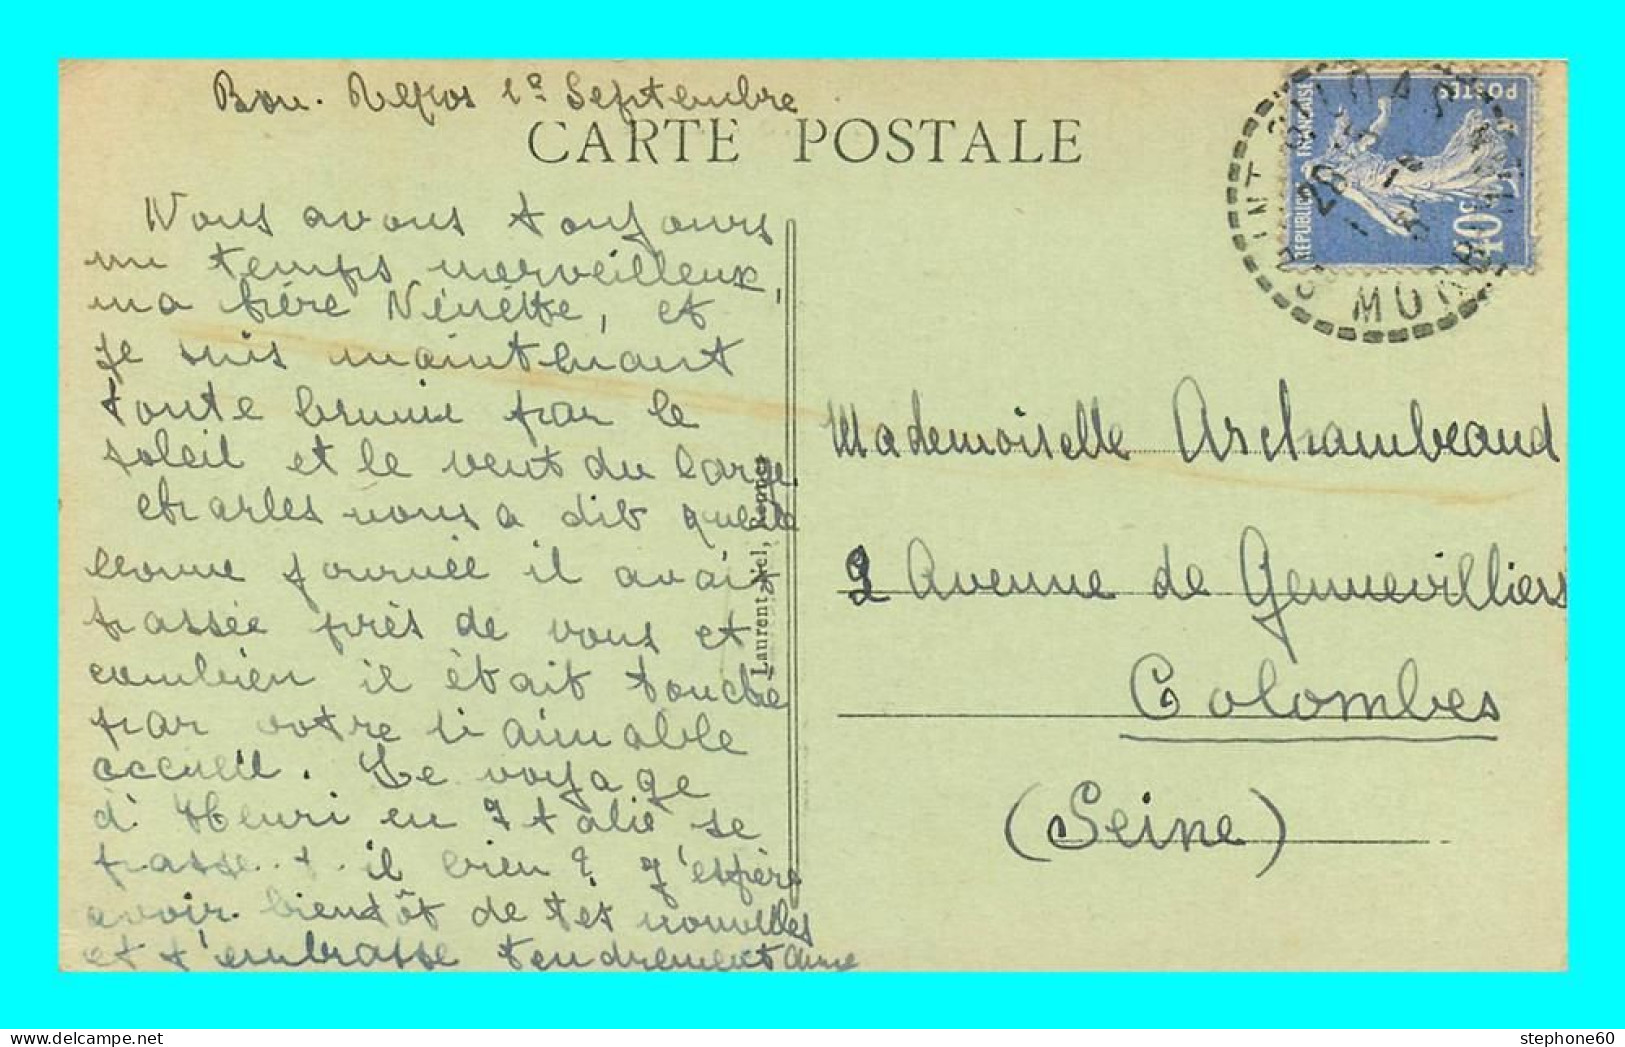 Bon-Repos 1er Septembre
CARTE POSTALE
Nous avons toujours
un temps merveilleux,
ma Nénette, et
je suis maintenant
toute brunie par le
soleil et le vent du large.
Charles nous a dit quelle
bonne journée il avait
passée près de vous et
combien il était touché
par votre si aimable
accueil. Le voyage
d'Henri en Italie se
passe-t-il bien ? J'espère
avoir bientôt de tes nouvelles
et t'embrasse tendrement Anne
Laurent-Nel, Rennes
REPUBLIQUE FRANÇAISE
POSTES
40c
SAINT GILDAS
MORBIHAN
Mademoiselle Archambeaud
2 Avenue de Gennevilliers
Colombes
(Seine)
stephone60